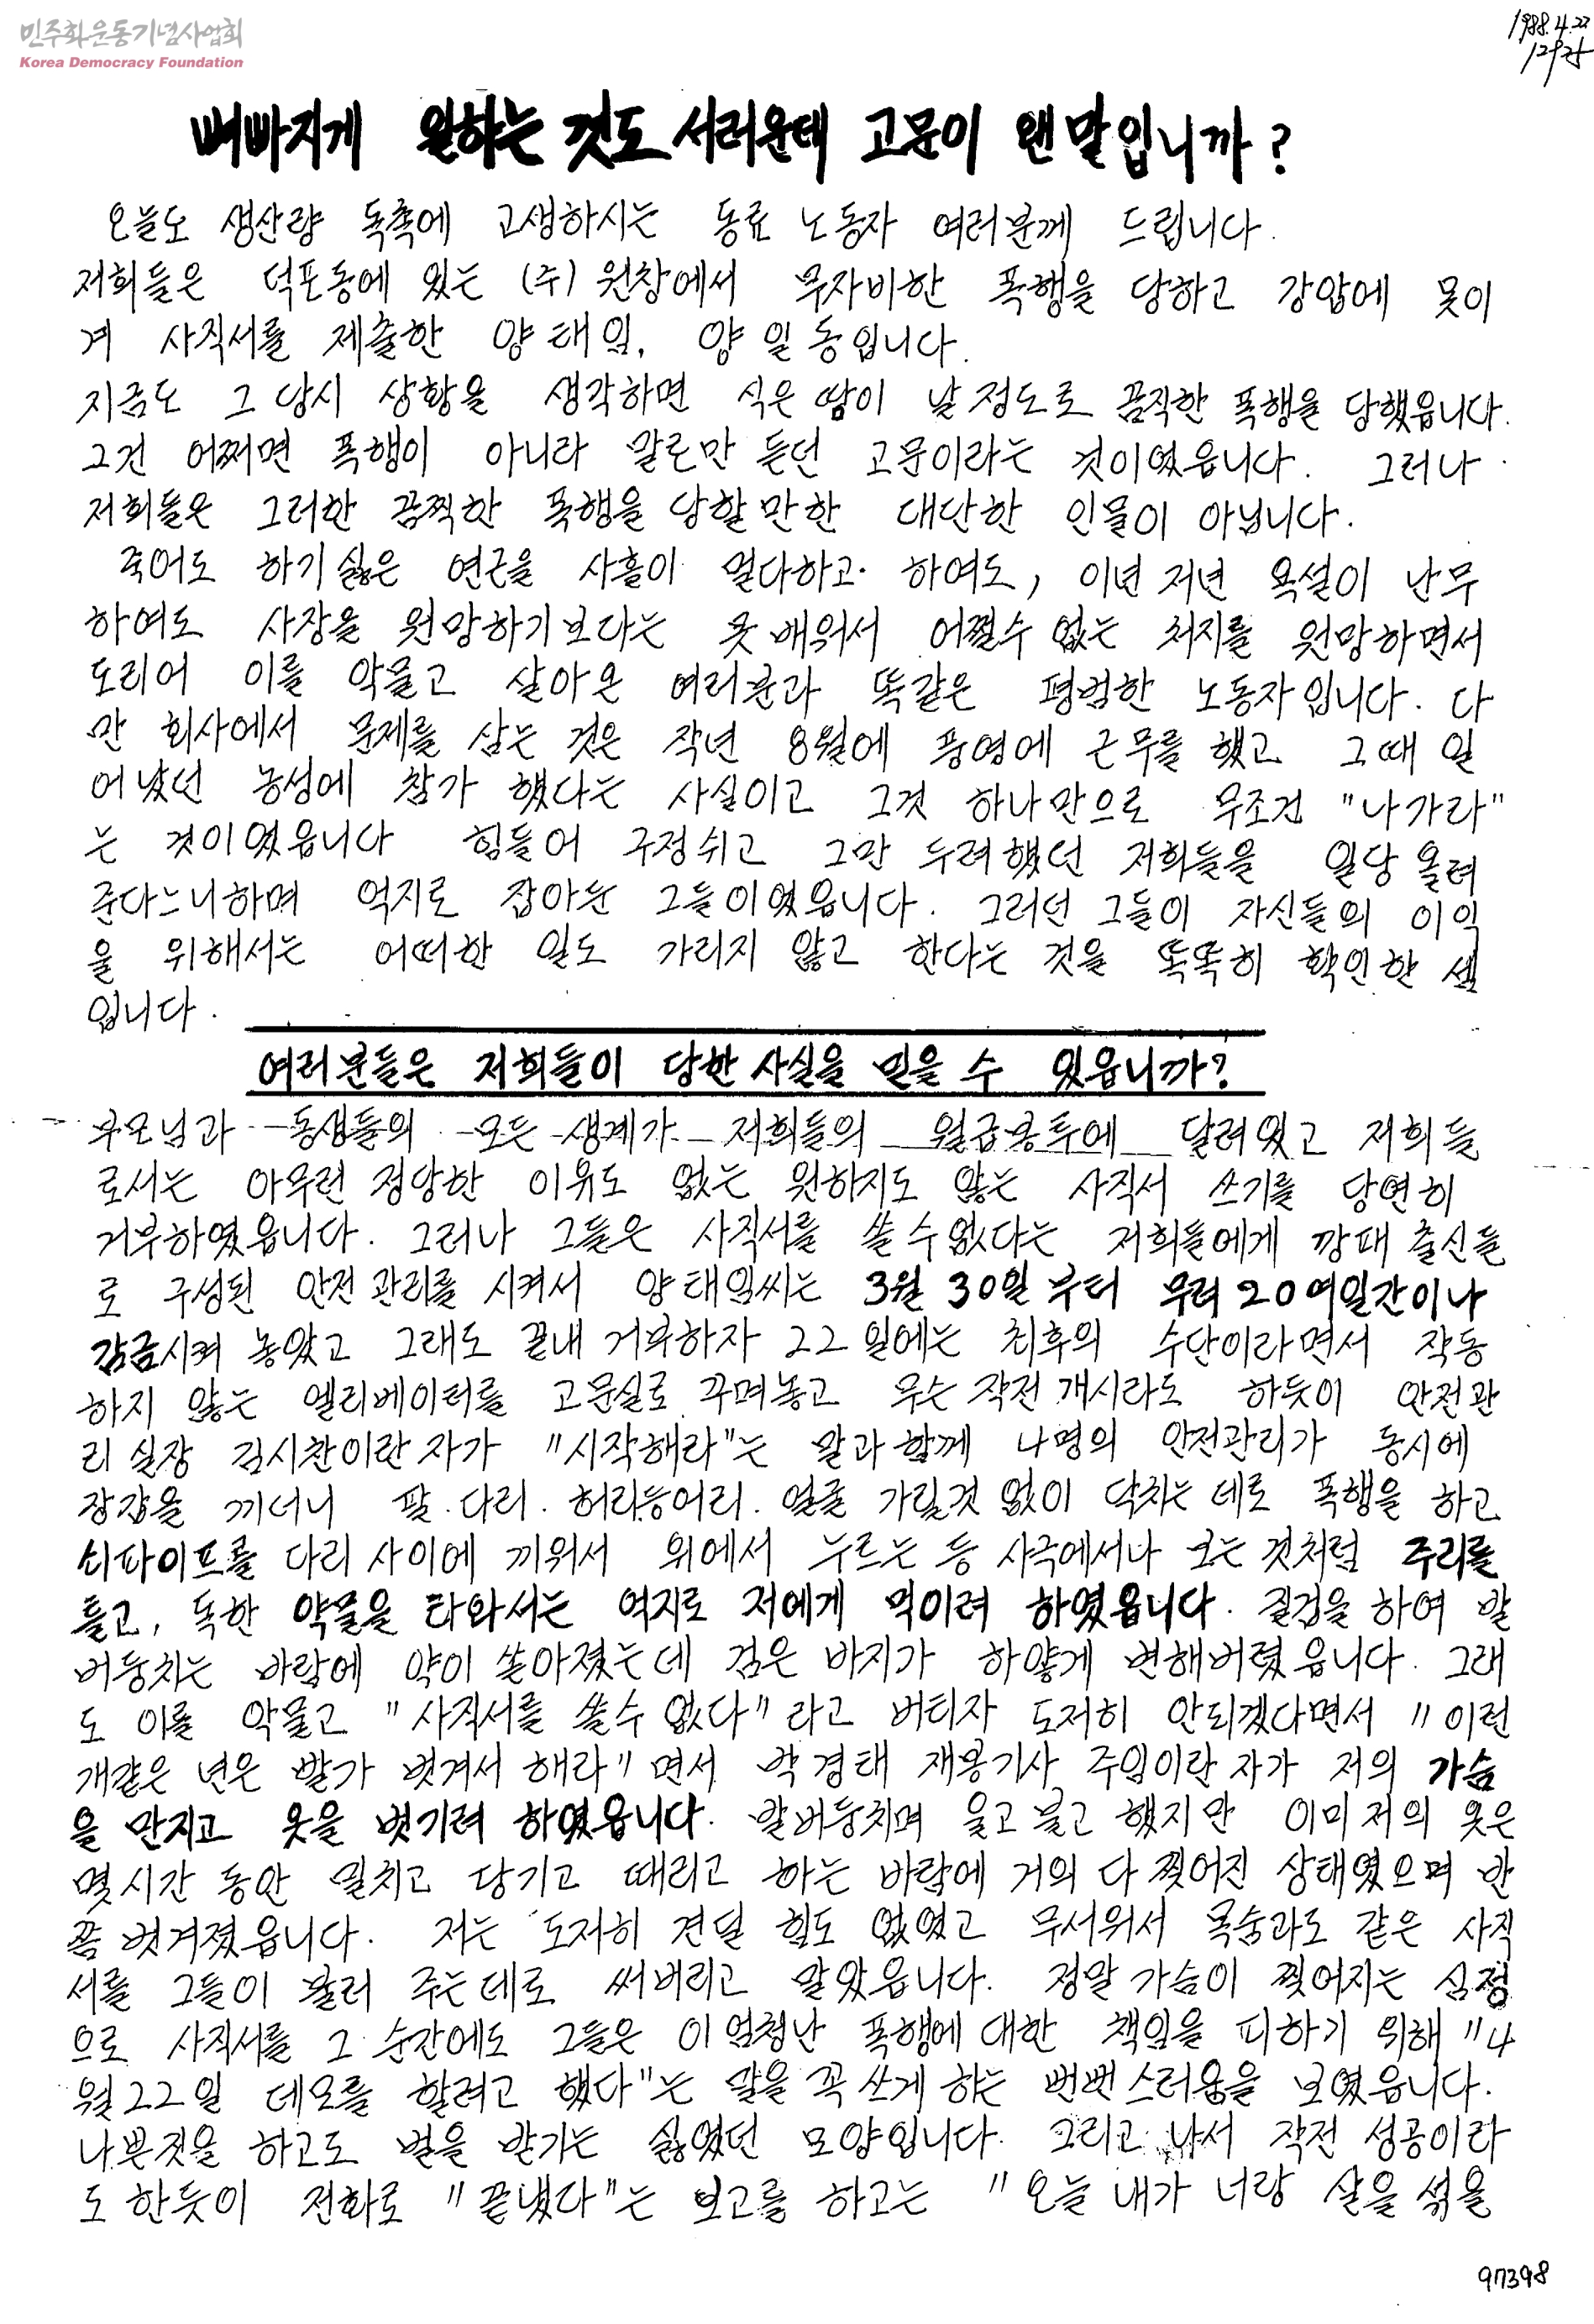 민주화운동기념사업회
Korea Democracy Foundation
1988.4.22
뼈빠지게 일하는 것도 서러운데 고문이 왠말입니까?
오늘도 생산량 독촉에 고생하시는 동료 노동자 여러분께 드립니다.
저희들은 덕포동에 있는 (주) 원창에서 무자비한 폭행을 당하고 강압에 못이
겨 사직서를 제출한 양태임, 양일동입니다.
지금도 그 당시 상황을 생각하면 식은 땀이 날 정도로 끔직한 폭행을 당했읍니다.
그건 어쩌면 폭행이 아니라 말로만 듣던 고문이라는 것이였읍니다. 그러나
저희들은 그러한 끔찍한 폭행을 당할 만한 대단한 인물이 아닙니다.
죽어도 하기 싫은 연근을 사흘이 멀다하고 하여도, 이년 저년 욕설이 난무
하여도 사장을 원망하기 보다는 못 배워서 어쩔수 없는 처지를 원망하면서
도리어 이를 악물고 살아온 여러분과 똑같은 평범한 노동자입니다. 다
만 회사에서 문제를 삼는 것은 작년 8월에 풍영에 근무를 했고 그때 일
어났던 농성에 참가 했다는 사실이고 그것 하나만으로 무조건 "나가라"
는 것이였읍니다 힘들어 구정쉬고 그만 두려했던 저희들을 일당 올려
준다느니하며 억지로 잡아논 그들이였읍니다. 그러던 그들이 자신들의 이익
을 위해서는 어떠한 일도 가리지 않고 한다는 것을 똑똑히 확인한 셈
입니다.
여러분들은 저희들이 당한 사실을 믿을 수 있읍니까?
부모님과 동생들의 모든 생계가 저희들의 월급봉투에 달려있고 저희들
로서는 아무런 정당한 이유도 없는 원하지도 않는 사직서 쓰기를 당연히
거부하였읍니다. 그러나 그들은 사직서를 쓸 수 없다는 저희들에게 깡패 출신들
로 구성된 안전관리를 시켜서 양태임씨는 3월 30일 부터 무려 20여일간이나
감금시켜 놓았고 그래도 끝내 거부하자 22일에는 최후의 수단이라면서 작동
하지 않는 엘리베이터를 고문실로 꾸며놓고 무슨 작전 개시라도 하듯이 안전관
리 실장 김시찬이란 자가 "시작해라"는 말과 함께 4명의 안전관리가 동시에
장갑을 끼더니 팔. 다리. 허리등어리. 얼굴 가릴것 없이 닥치는 데로 폭행을 하고
쇠파이프를 다리 사이에 끼워서 위에서 누르는 등 사극에서나 보는 것처럼 주리를
틀고, 독한 약물을 타와서는 억지로 저에게 먹이려 하였읍니다. 질겁을 하여 발
버둥치는 바람에 약이 쏟아졌는데 검은 바지가 하얗게 변해버렸읍니다. 그래
도 이를 악물고 "사직서를 쓸수 없다"라고 버티자 도저히 안되겠다면서 "이런
개같은 년은 발가 벗겨서 해라"면서 박경태 재봉기사 주임이란 자가 저의 가슴
을 만지고 옷을 벗기려 하였읍니다. 발버둥치며 울고 불고 했지만 이미 저의 옷은
몇시간 동안 밀치고 당기고 때리고 하는 바람에 거의 다 찢어진 상태였으며 반
쯤 벗겨졌읍니다. 저는 도저히 견딜 힘도 없었고 무서워서 목숨과도 같은 사직
서를 그들이 불러 주는데로 써버리고 말았읍니다. 정말 가슴이 찢어지는 심정
으로 사직서를 그 순간에도 그들은 이 엄청난 폭행에 대한 책임을 피하기 위해 "4
월 22일 데모를 할려고 했다"는 말을 꼭 쓰게 하는 뻔뻔스러움을 보였읍니다.
나쁜짓을 하고도 벌을 받기는 싫였던 모양입니다. 그리고 나서 작전 성공이라
도 한듯이 전화로 "끝냈다"는 보고를 하고는 "오늘 내가 너랑 살을 섞을
97398